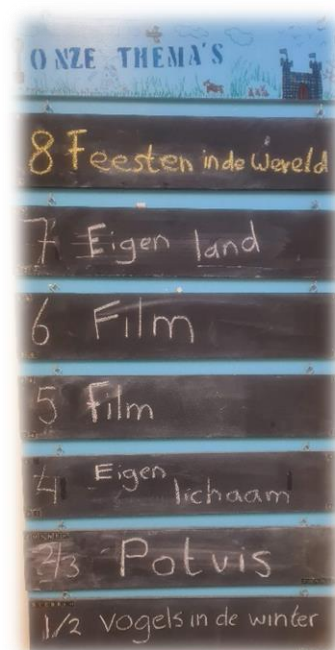 ONZE THEMA'S
8 Feesten in de Wereld
7 Eigen land
6 Film
5 Film
4 Eigen
lichaam
2/3 Potvis
1/2 Vogels in de winter